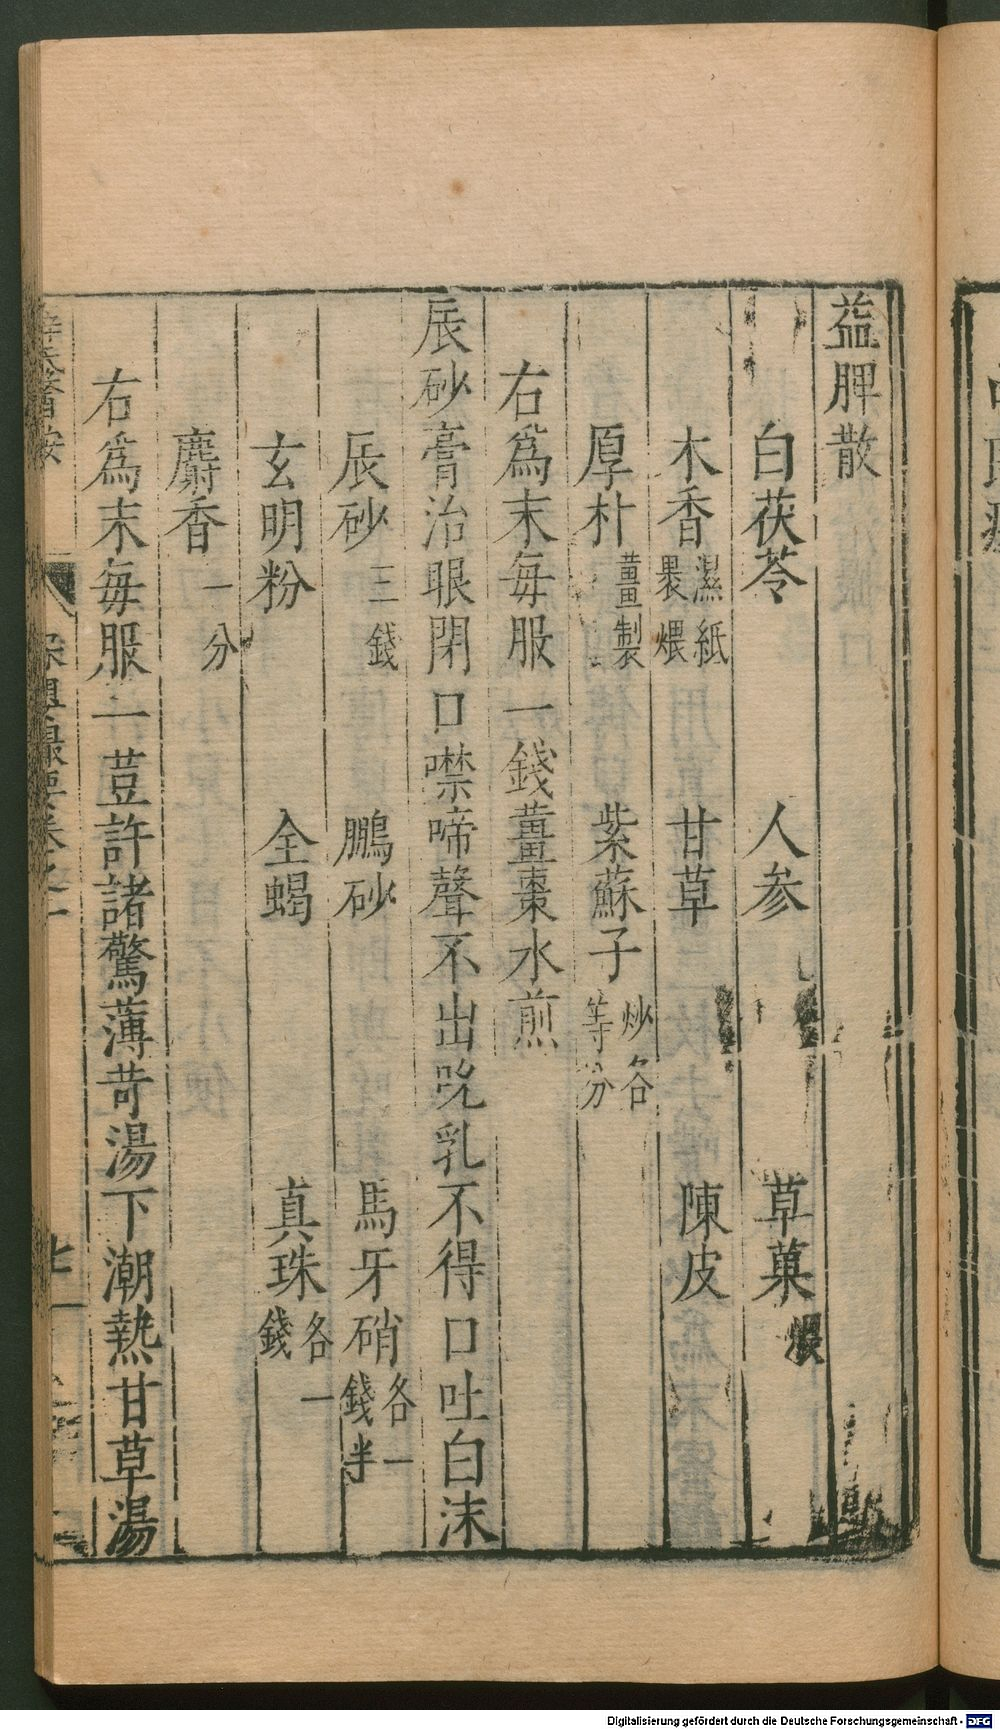 益脾散
白茯苓 人参 草菓煨
木香濕紙裹煨 甘草 陳皮
厚朴薑製 紫蘇子炒各等分
右爲末毎服一錢薑棗水煎
辰砂膏治眼閉口噤啼聲不出吮乳不得口吐白沫
辰砂三錢 鵬砂 馬牙硝各一錢半
玄明粉 全蝎 真珠各一錢
麝香一分
右爲末毎服一荳許諸驚薄苛湯下潮熱甘草湯
Digitalisierung gefördert durch die Deutsche Forschungsgemeinschaft - DFG